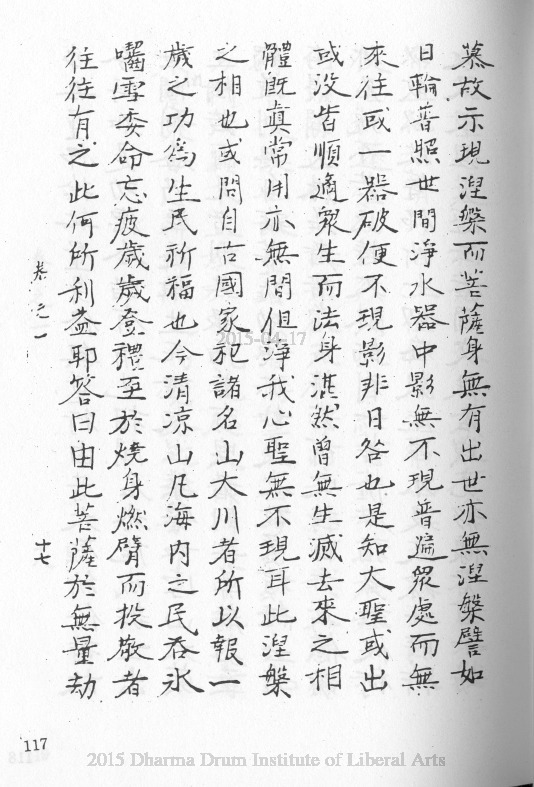 慕故示現涅槃而菩薩身無有出世亦無涅槃譬如
日輪普照世間淨水器中影無不現普遍眾處而無
來往或一器破便不現影非日咎也是知大聖或出
或没皆順適眾生而法身湛然曾無生滅去來之相
體既真常用亦無間但淨我心聖無不現耳此涅槃
之相也或問自古國家祀諸名山大川者所以報一
歲之功為生民祈福也今清凉山凡海内之民吞氷
嚙雪委命忘疲歲歲登禮至於燒身燃臂而投敬者
往往有之此何所利益耶答曰由此菩薩於無量劫
卷之一
十七
117
2015-04-17
2015 Dharma Drum Institute of Liberal Arts